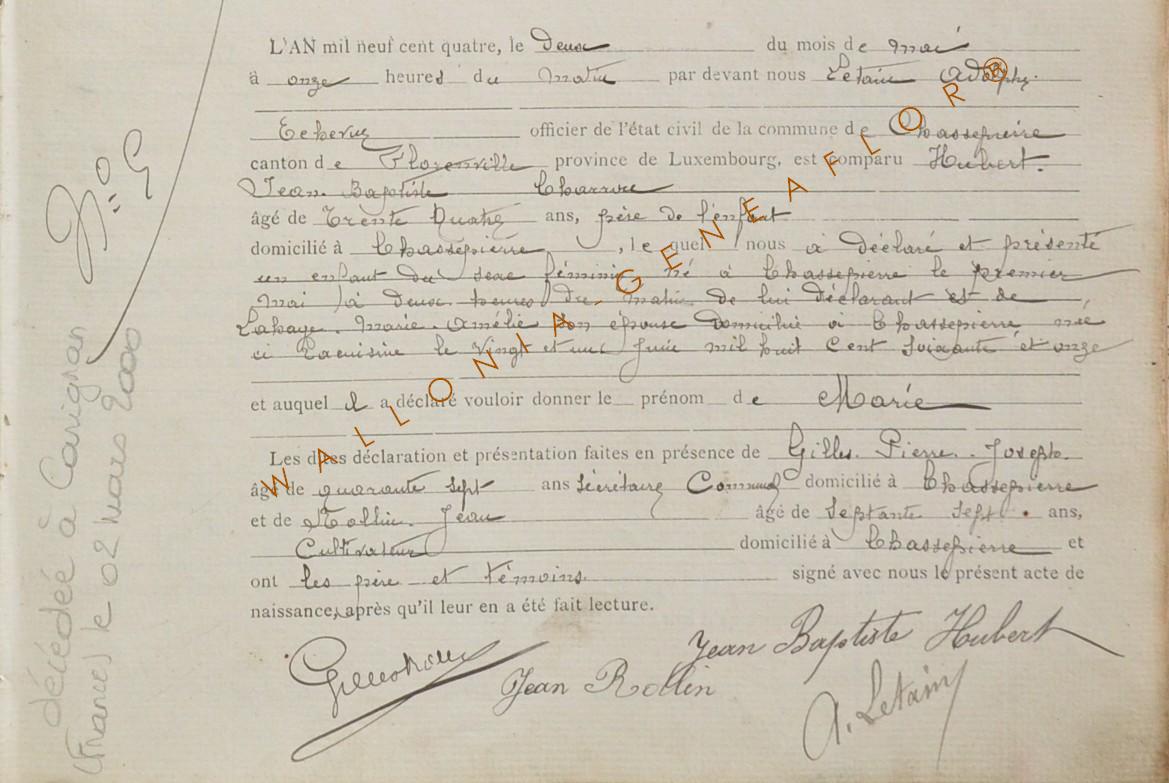 L'AN mil neuf cent quatre, le deux du mois de mai
à onze heures du matin par devant nous Letain Adolphe
Echevin officier de l'état civil de la commune de Chassepierre
canton de Florenville province de Luxembourg, est comparu Hubert.
Jean Baptiste Charron
âgé de Trente Quatre ans, père de l'enfant
domicilié à Chassepierre, lequel nous à déclaré et présenté
un enfant du sexe féminin né à Chassepierre le premier
mai à deux heures du matin de lui déclarant et de
Lahaye. Marie. Amélie son épouse domicilié à Chassepierre, née
à Lacuisine le Vingt et un Juin mil huit Cent soixante et onze
et auquel il a déclaré vouloir donner le prénom de Marie
Les dites déclaration et présentation faites en présence de Gilles. Pierre. Joseph.
âgé de quarante sept ans Sécrétaire Communal domicilié à Chassepierre
et de Rollin. Jean âgé de Septante sept. ans,
Cultivateur domicilié à Chassepierre et
ont les père et témoins. signé avec nous le présent acte de
naissance, après qu'il leur en a été fait lecture.
Jean Baptiste Hubert
Jean Rollin
A. Letain
décédée à Carignan
(France) le 02 Mars 2000
WALLONIA GENEAFLOR®